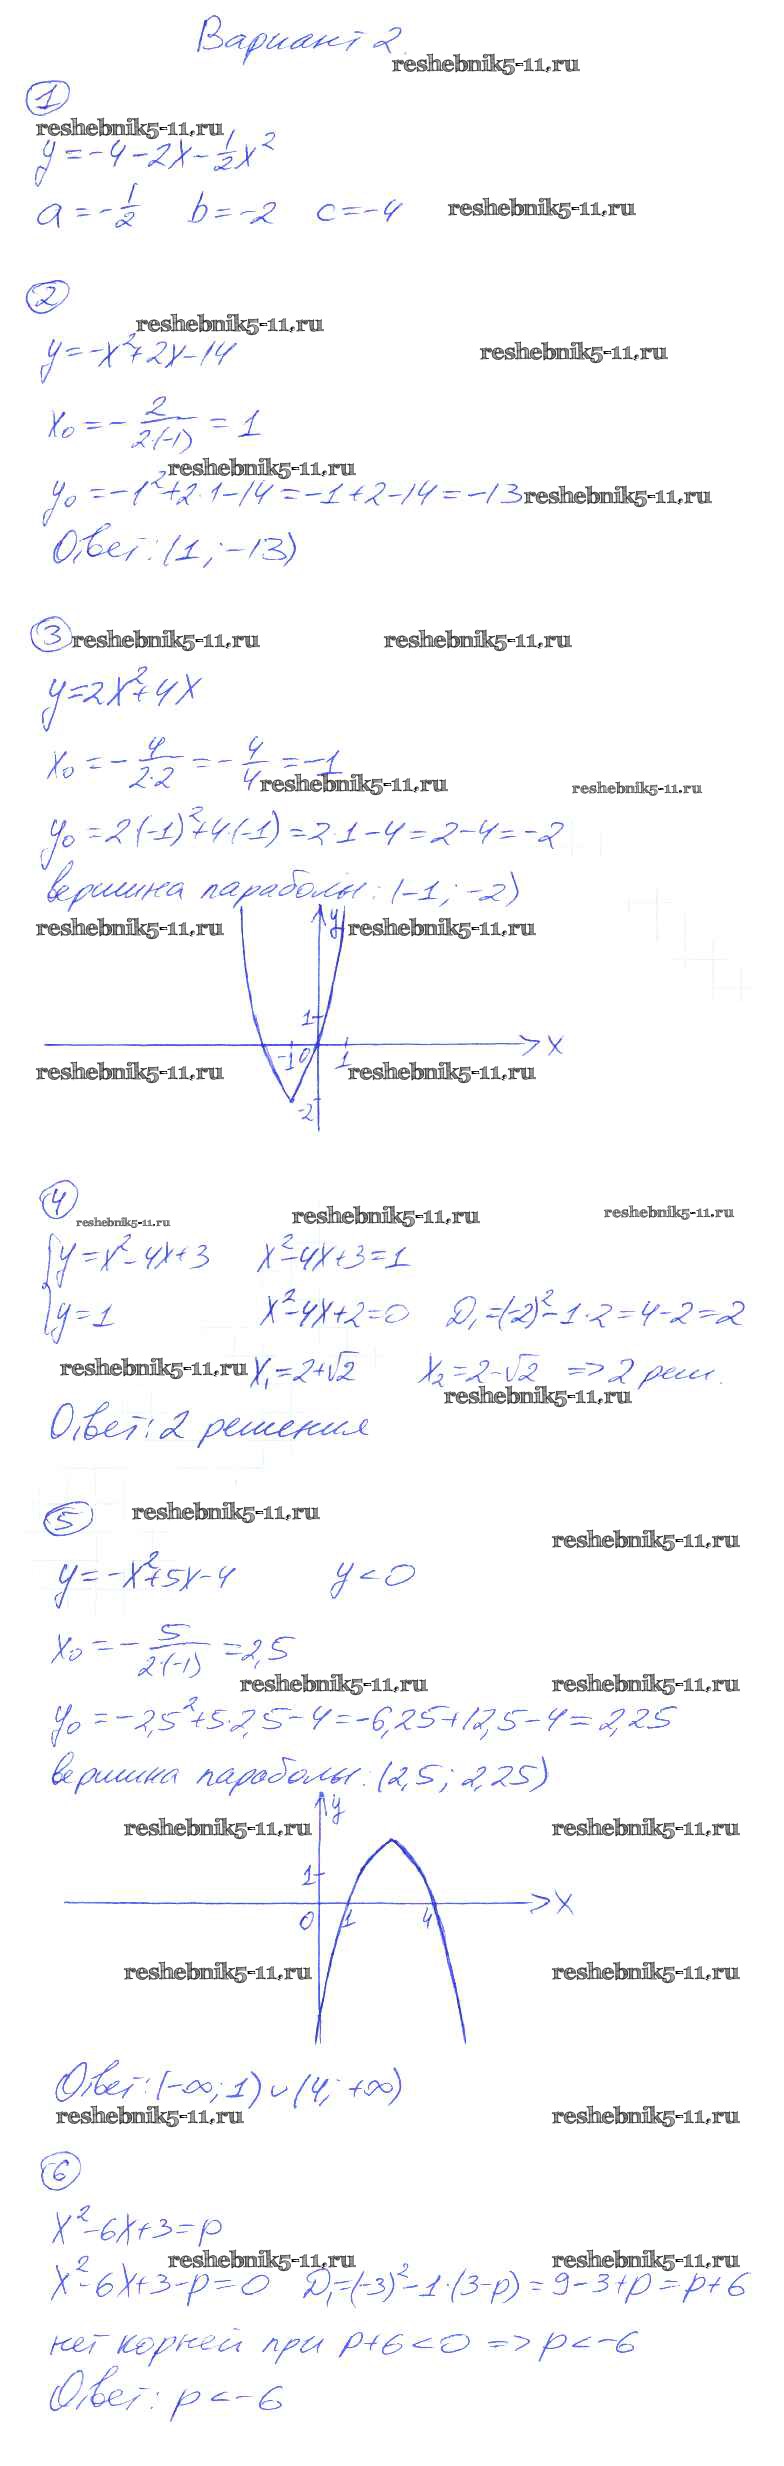 Вариант 2.
reshebnik5-11.ru
1
reshebnik5-11.ru
y=-4-2x-1/2x²
a=-1/2 b=-2 c=-4 reshebnik5-11.ru
2
reshebnik5-11.ru
y=-x²+2x-14 reshebnik5-11.ru
x₀=-2/(2·(-1))=1
reshebnik5-11.ru
y₀=-1²+2·1-14=-1+2-14=-13 reshebnik5-11.ru
Ответ: (1; -13)
3 reshebnik5-11.ru reshebnik5-11.ru
y=2x²+4x
x₀=-4/(2·2)=-4/4=-1
reshebnik5-11.ru reshebnik5-11.ru
y₀=2·(-1)²+4·(-1)=2·1-4=2-4=-2
вершина параболы: (-1; -2)
reshebnik5-11.ru y reshebnik5-11.ru
1
-1 0 1 x
reshebnik5-11.ru reshebnik5-11.ru
-2
4
reshebnik5-11.ru reshebnik5-11.ru reshebnik5-11.ru
{y=x²-4x+3 x²-4x+3=1
y=1 x²-4x+2=0 D₁=(-2)²-1·2=4-2=2
reshebnik5-11.ru x₁=2+√2 x₂=2-√2 => 2 реш.
reshebnik5-11.ru
Ответ: 2 решения
5 reshebnik5-11.ru
reshebnik5-11.ru
y=-x²+5x-4 y<0
x₀=-5/(2·(-1))=2,5
reshebnik5-11.ru reshebnik5-11.ru
y₀=-2,5²+5·2,5-4=-6,25+12,5-4=2,25
вершина параболы: (2,5; 2,25)
y
reshebnik5-11.ru reshebnik5-11.ru
1
0 1 4 x
reshebnik5-11.ru reshebnik5-11.ru
Ответ: (-∞; 1)∪(4; +∞)
reshebnik5-11.ru reshebnik5-11.ru
6
x²-6x+3=p
reshebnik5-11.ru reshebnik5-11.ru
x²-6x+3-p=0 D₁=(-3)²-1·(3-p)=9-3+p=p+6
нет корней при p+6<0 => p<-6
Ответ: p<-6